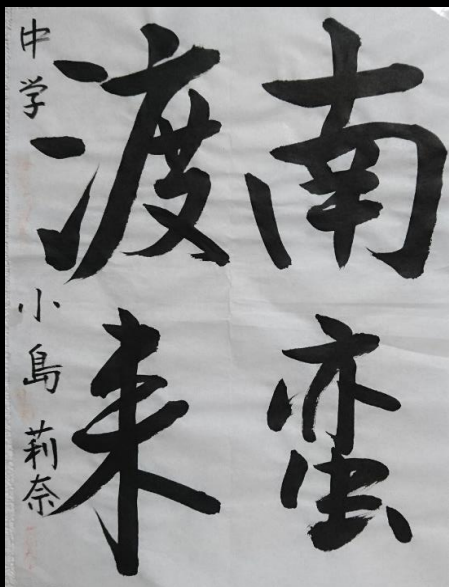 南蛮
渡来
中学 小島莉奈